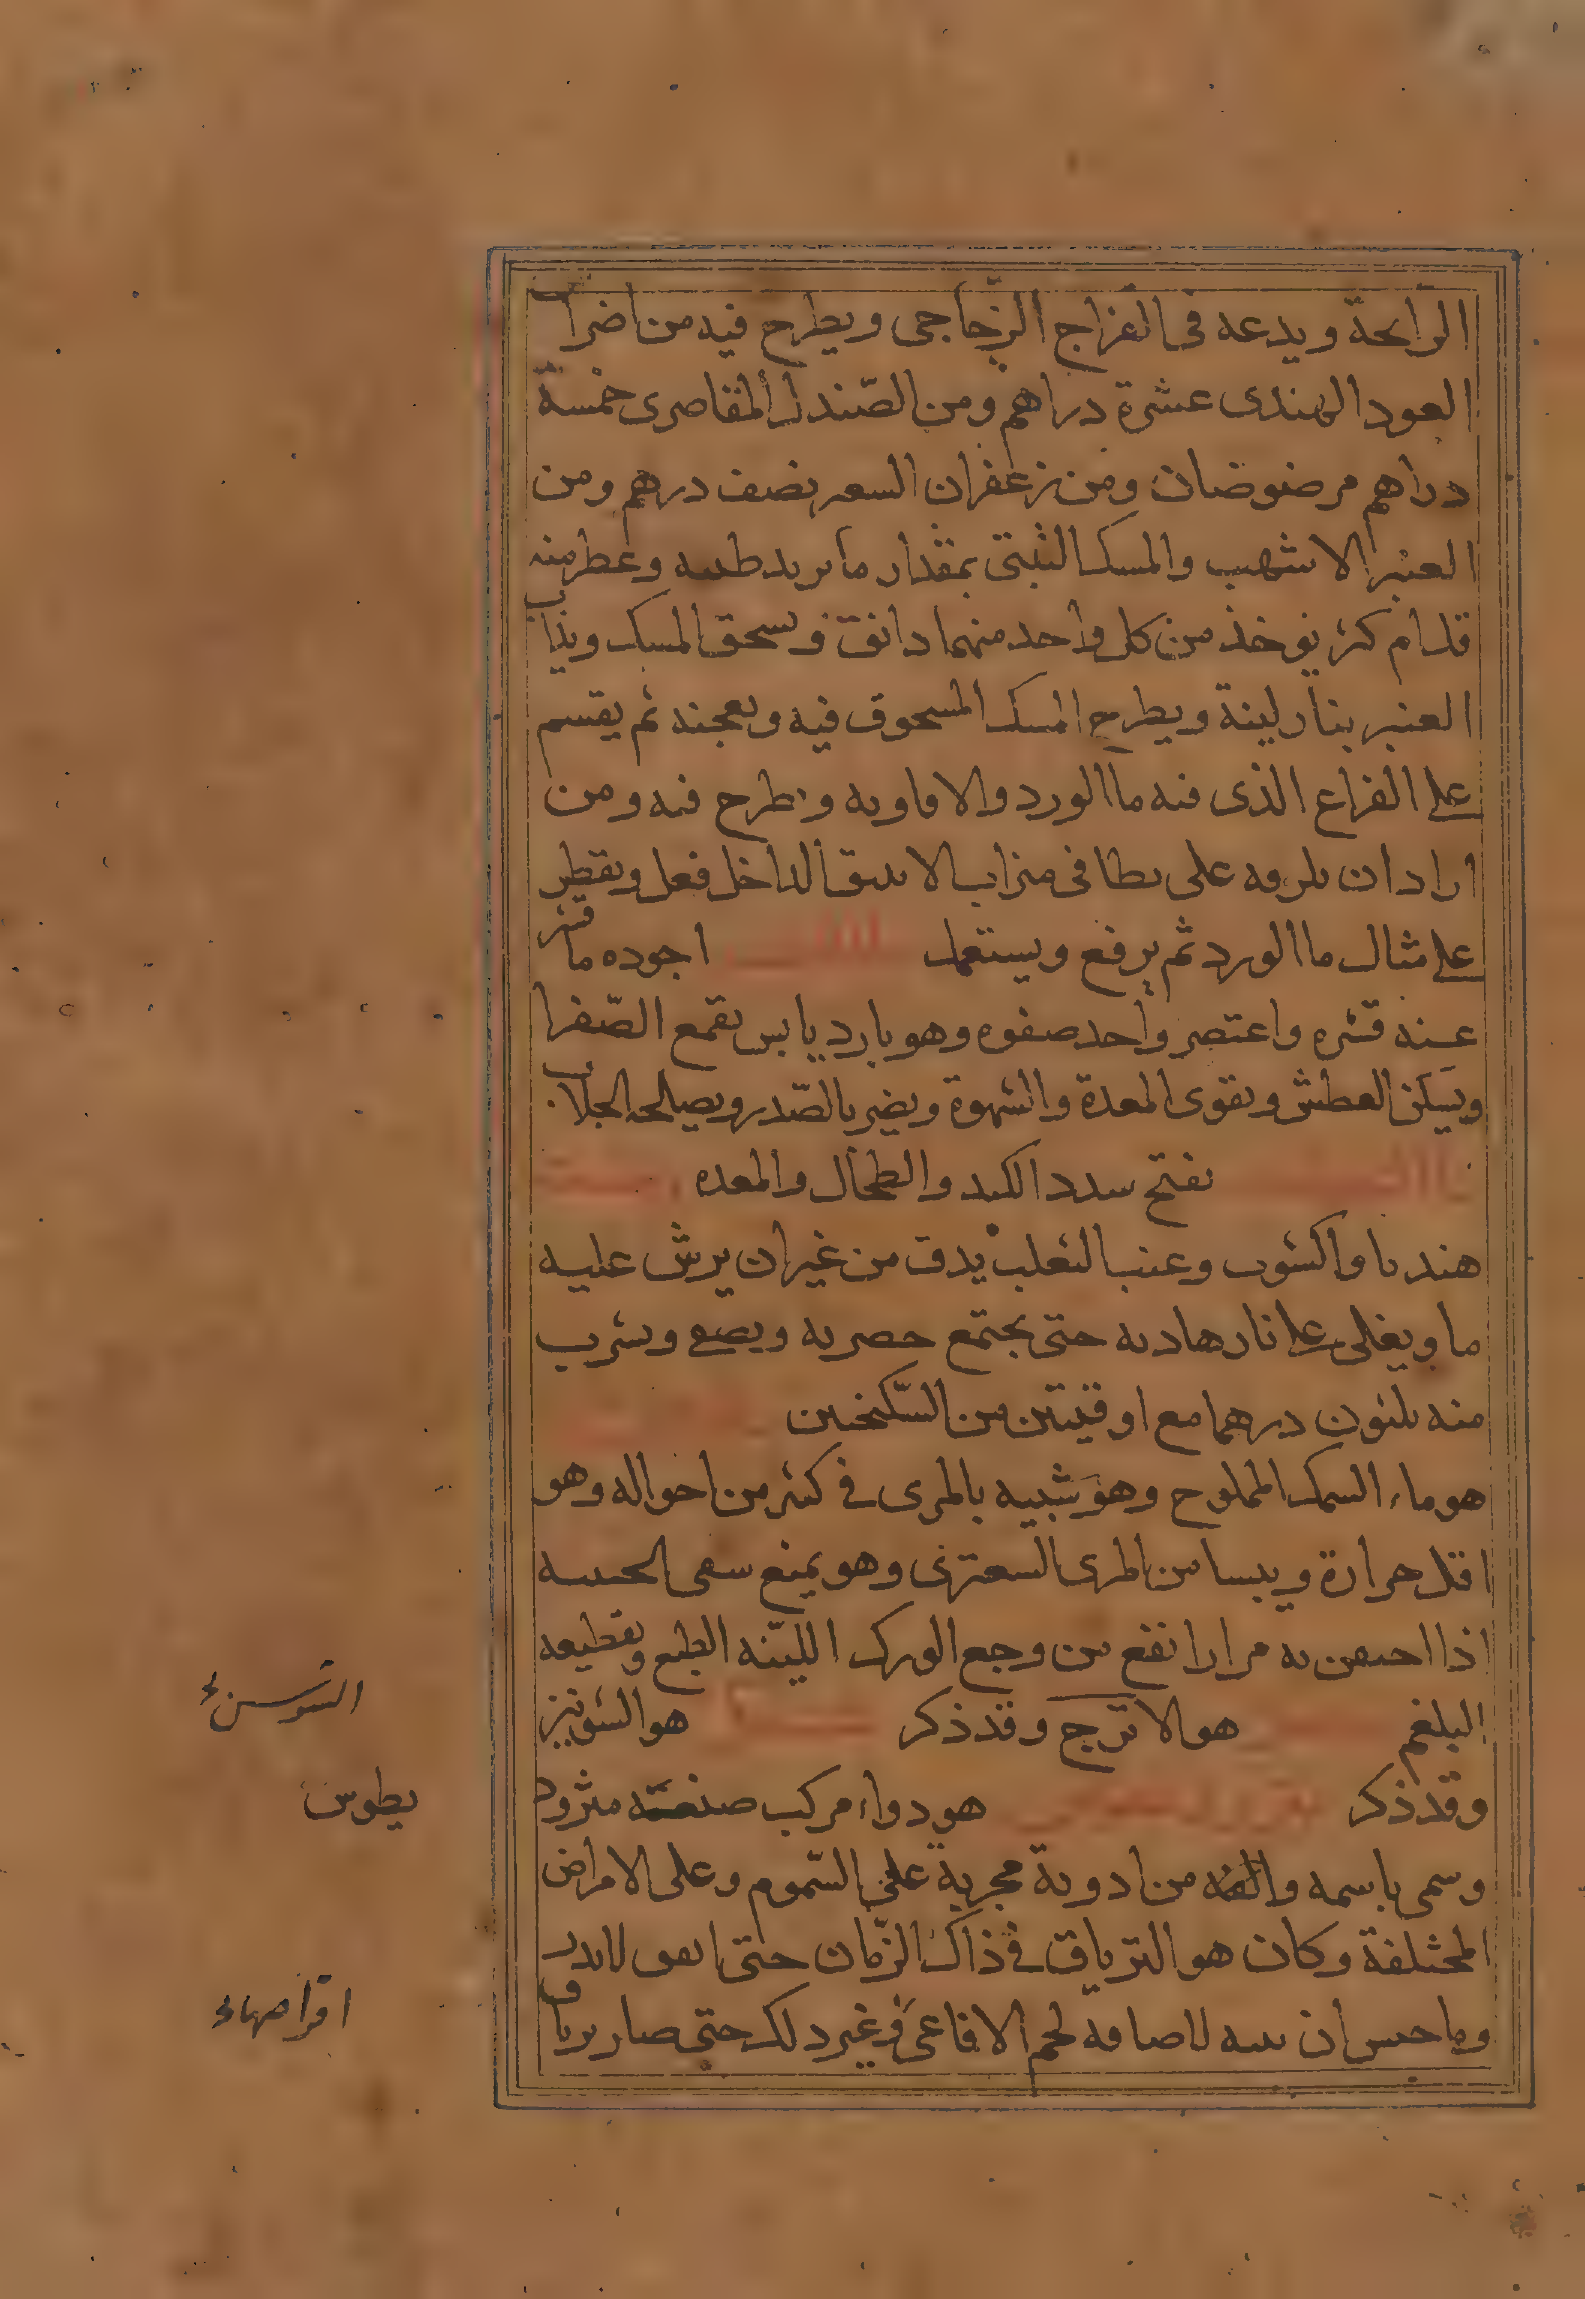 الرايحة ويدعه فى القزاج الزجاجى ويطرح فيه من اضراب
العود الهندى عشرة دراهم ومن الصندل المقاصرى خمسة
دراهم مرضوضان ومن زعفران السعر نصف درهم ومن
العنبر الاشهب والمسك التبتى بمقدار ما يريد طيبه وعطر منه
يوخذ من كل واحد منهما دانق ويسحق المسك ويذاب
العنبر بنار لينة ويطرح المسك المسحوق فيه ويعجنه ثم يقسم
على القزاع الذى فيه ما الورد والافاويه ويطرح فيه ومن
اراد ان على فى ميزاب الداخل فعل ويقطر
على مثال ما الورد ثم يرفع ويستعمل اجوده ما قشر
عنه قشره واعتصر واخد صفوه وهو بارد يابس يقمع الصفرا
ويسكن العطش ويقوى المعدة والشهوة ويضر بالصدر ويصالحه الجلاب
يفتح سدد الكبد والطحال والمعده
هندبا والكشوث وعنب الثعلب يدق من غير ان يرش عليه
ما ويغلى على نار هاديه حتى يجتمع ويشرب
منه ثلثون درهما مع اوقيتين من السكنجبين
هو ماء السمك المملوح وهو شبيه بالمرى فى كثير من احواله وهو
اقل حرارة ويبسا من المرى السعترى وهو يمنع سعى الخبيثه
اذا احتقن به مرارا نفع من وجع الورك اللينه الطبع وتقطيعه
البلغم هو الاترج وقد ذكر هو الشونيز
وقد ذكر هو دواء مركب صنعه مثرود
يطوس
وسمى باسمه والفه من ادوية مجربة على السموم وعلى الامراض
المختلفة وكان هو الترياق فى ذاك الزمان حتى
لحم الافاعى فى غير ذلك حتى صار ترياق
اقراصهاء